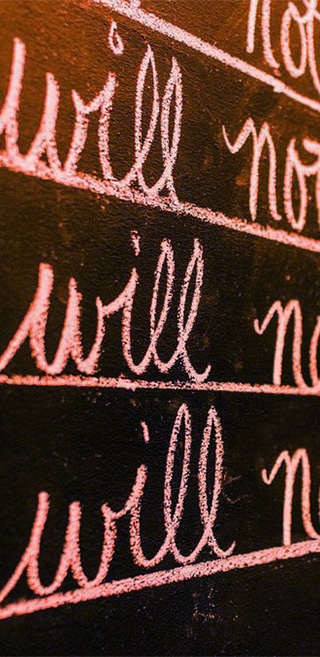 no
will no
will no
will n